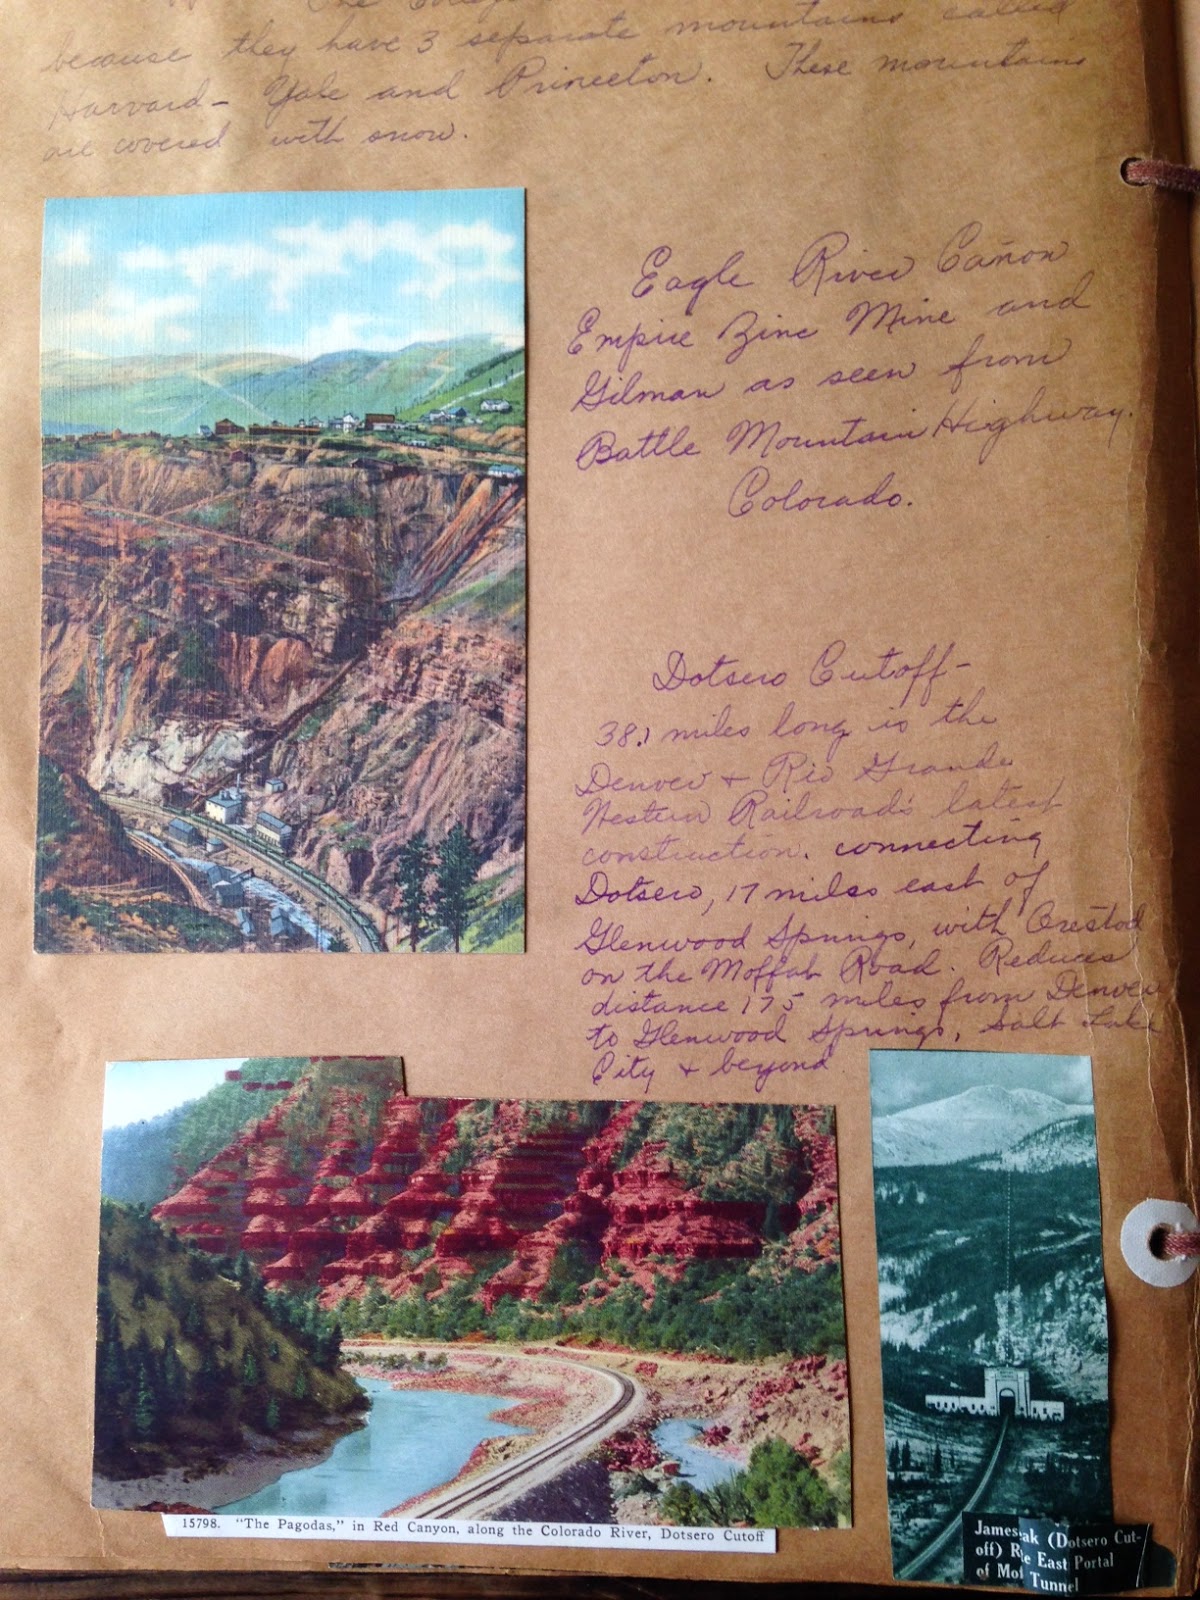 The
because they have 3 separate mountains called
Harvard - Yale and Princeton. These mountains
are covered with snow.
Eagle River Cañon
Empire Zinc Mine and
Gilman as seen from
Battle Mountain Highway.
Colorado.
Dotsero Cutoff-
38.1 miles long is the
Denver + Rio Grande
Western Railroad's latest
construction. connecting
Dotsero, 17 miles east of
Glenwood Springs, with Orestod
on the Moffat Road. Reduces
distance 175 miles from Denver
to Glenwood Springs, Salt Lake
City + beyond
15798. "The Pagodas," in Red Canyon, along the Colorado River, Dotsero Cutoff
James ak (Dotsero Cut-
off) R e East Portal
of Mof Tunnel